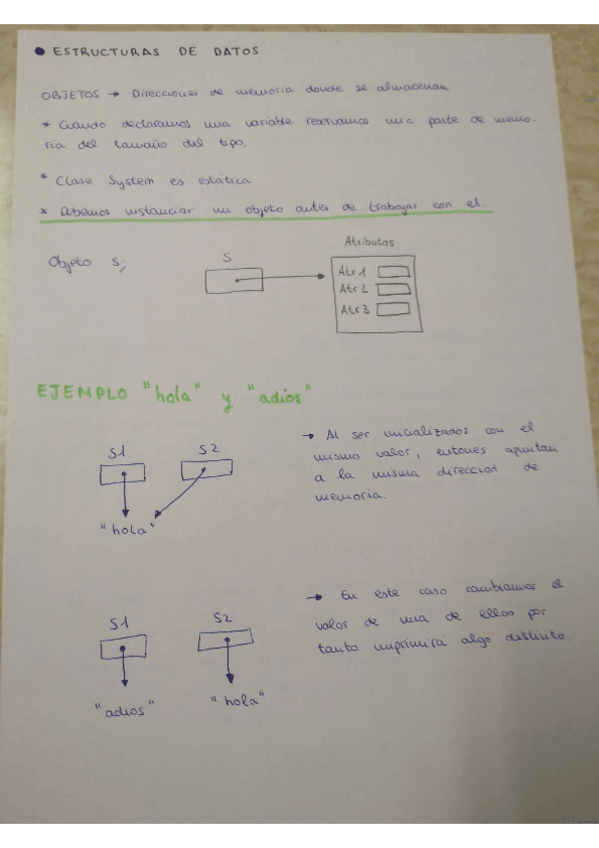 ● ESTRUCTURAS DE DATOS
OBJETOS → Direcciones de memoria donde se almacenan
* Cuando declaramos una variable reservamos una parte de memo-
ria del tamaño del tipo.
* Clase System es estática
* Debemos instanciar un objeto antes de trabajar con el.
Atributos
Objeto s;
S
Atr 1
Atr 2
Atr 3
EJEMPLO "hola" y "adios"
→ Al ser inicializados con el
mismo valor, entonces apuntan
a la misma dirección de
memoria.
S1 S2
"hola"
→ En este caso cambiamos el
valor de una de ellas por
tanto imprimirá algo distinto.
S1 S2
"adios" "hola"